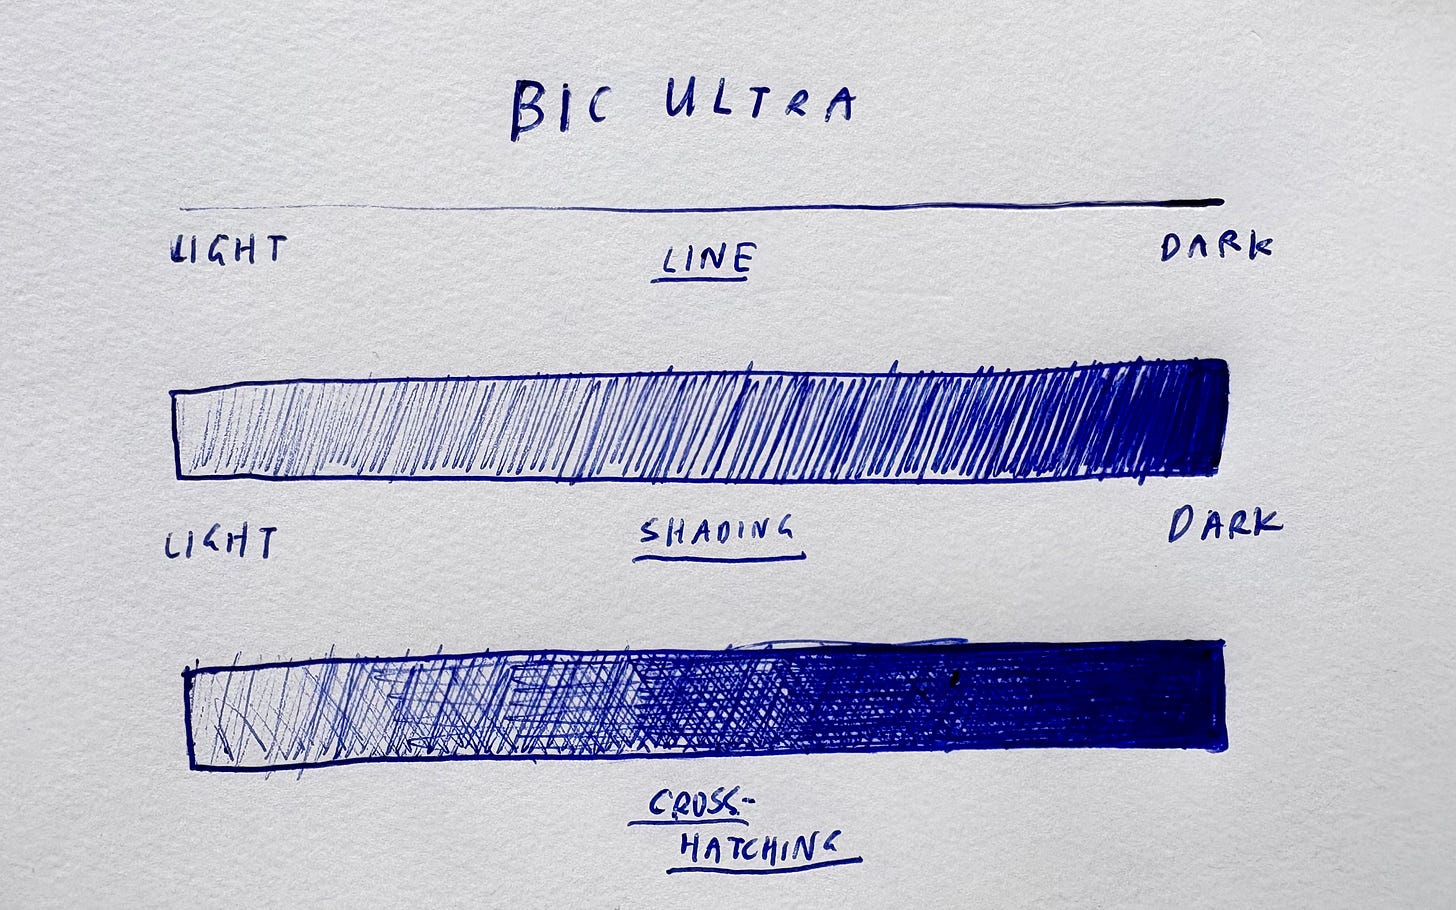 BIC ULTRA
LIGHT LINE DARK
LIGHT SHADING DARK
CROSS-
HATCHING